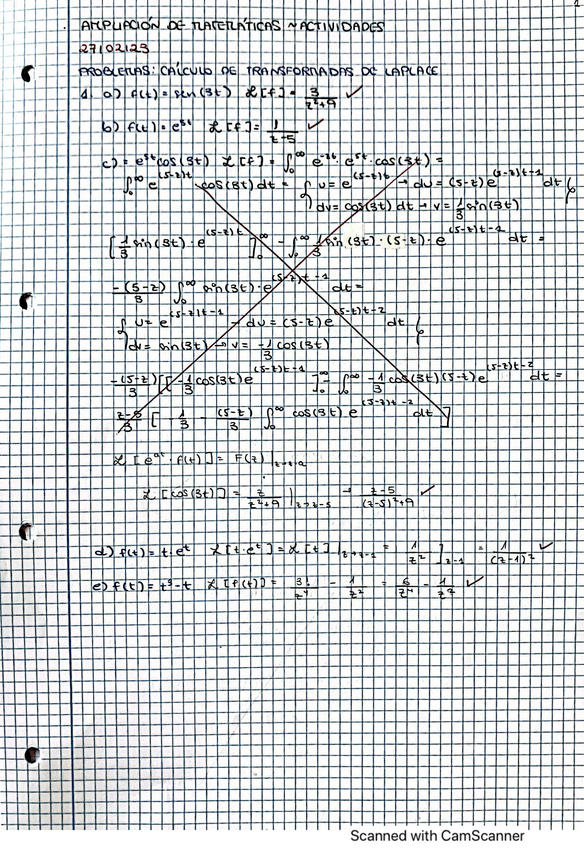 1
AMPLIACIÓN DE MATEMÁTICAS ~ ACTIVIDADES
27/02/23
PROBLEMAS: CÁLCULO DE TRANSFORMADAS DE LAPLACE
1. a) f(t) = sen(3t) ℒ[f] = 3/(z²+9) ✓
b) f(t) = e^{5t} ℒ[f] = 1/(z-5) ✓
c) = e^{5t} cos(3t) ℒ[f] = ∫₀^∞ e^{-zt} · e^{5t} · cos(3t) =
∫₀^∞ e^{(5-z)t} cos(3t) dt = { u = e^{(5-z)t} → du = (5-z) e^{(5-z)t-1} dt }
dv = cos(3t) dt → v = 1/3 sin(3t)
[1/3 sin(3t) · e^{(5-z)t}]₀^∞ - ∫₀^∞ 1/3 sin(3t) · (5-z) · e^{(5-z)t-1} dt =
-(5-z)/3 ∫₀^∞ sin(3t) · e^{(5-z)t-1} dt =
{ u = e^{(5-z)t-1} → du = (5-z) e^{(5-z)t-2} dt }
dv = sin(3t) → v = -1/3 cos(3t)
-(5-z)/3 [-1/3 cos(3t) e^{(5-z)t-1}]₀^∞ - ∫₀^∞ -1/3 cos(3t) (5-z) e^{(5-z)t-2} dt =
z-5/3 [-1/3 - (5-z)/3 ∫₀^∞ cos(3t) e^{(5-z)t-2} dt]
ℒ[e^{at} · f(t)] = F(z)|_{z→z-a}
ℒ[cos(3t)] = z/(z²+9)|_{z→z-5} → (z-5)/((z-5)²+9) ✓
d) f(t) = t·e^t ℒ[t·e^t] = ℒ[t]|_{z→z-1} = 1/z²]_{z-1} = 1/(z-1)² ✓
e) f(t) = t³-t ℒ[f(t)] = 3!/z⁴ - 1/z² = 6/z⁴ - 1/z² ✓
Scanned with CamScanner